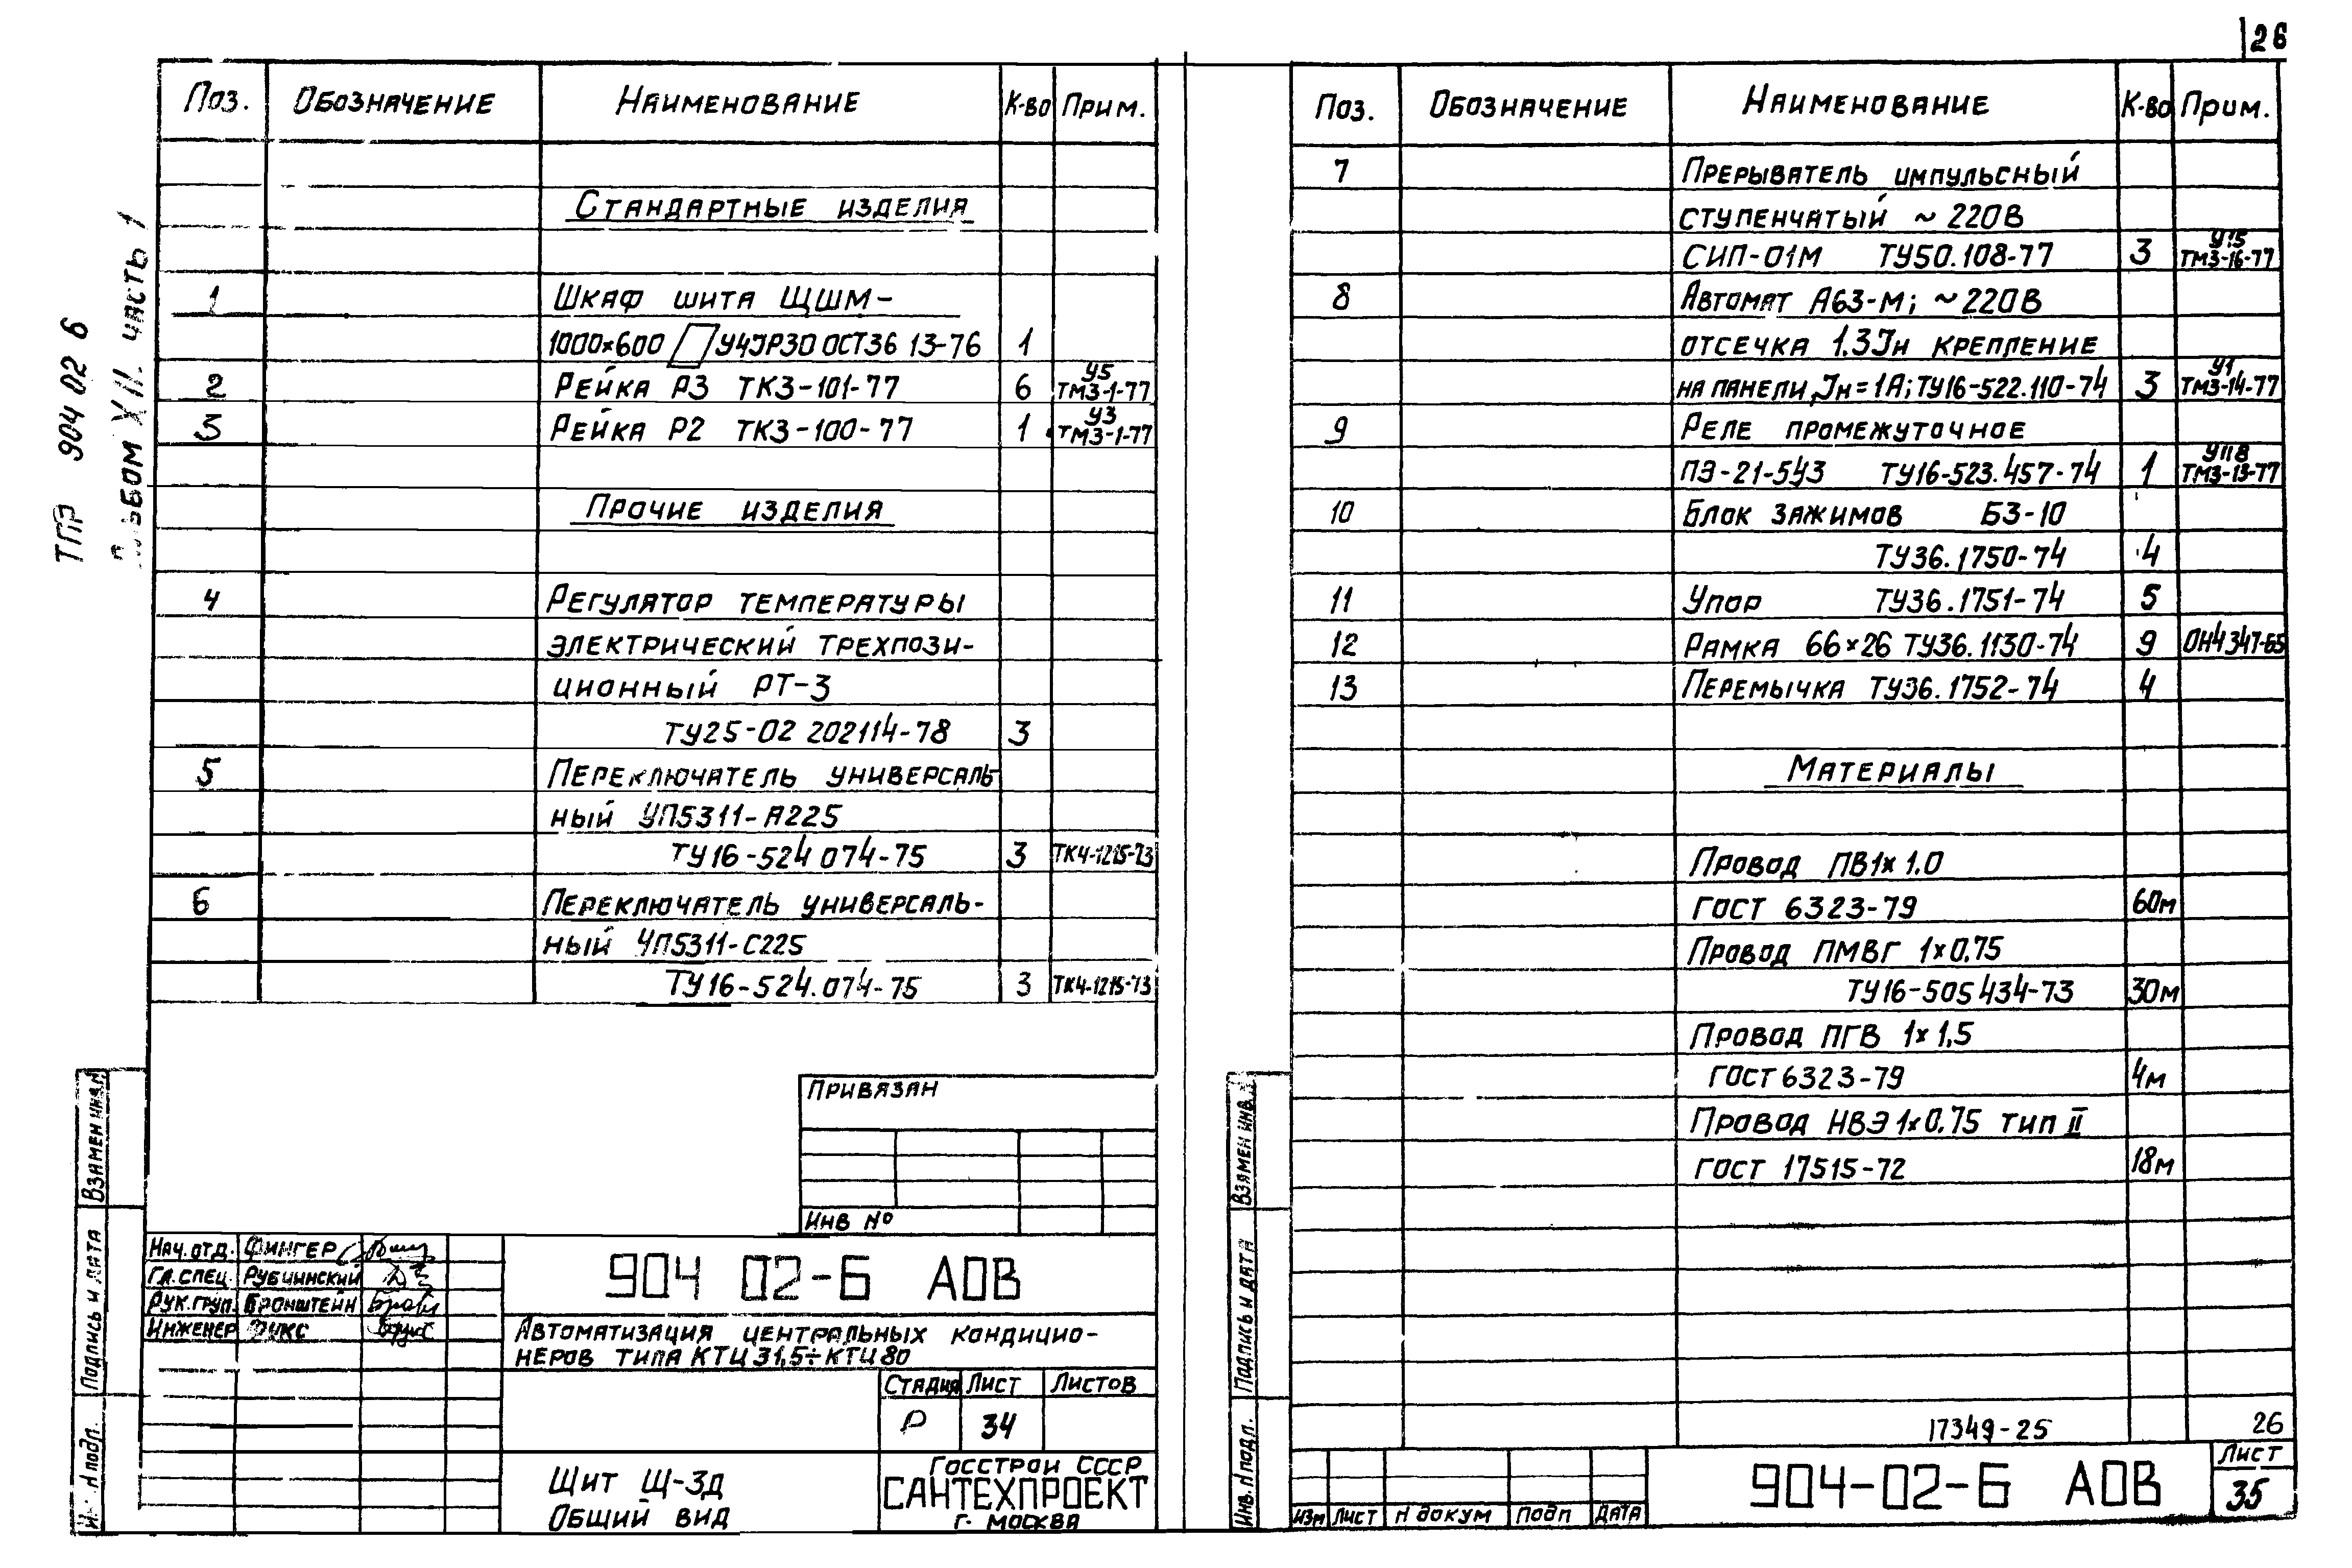 26
ТПР 904 02 6
Альбом XII. часть 1
Поз. Обозначение Наименование К-во Прим.
Стандартные изделия
1 Шкаф щита ЩШМ-
1000×600 У4ЈР30 ОСТ36 13-76 1
2 Рейка Р3 ТК3-101-77 6 У5 ТМ3-1-77
3 Рейка Р2 ТК3-100-77 1 У3 ТМ3-1-77
Прочие изделия
4 Регулятор температуры
электрический трехпози-
ционный РТ-3
ТУ25-02 202114-78 3
5 Переключатель универсаль-
ный УП5311-А225
ТУ16-524 074-75 3 ТК4-1215-73
6 Переключатель универсаль-
ный УП5311-С225
ТУ16-524.074-75 3 ТК4-1215-73
Привязан
Инв №
Взамен инв.
Подпись и дата
Нач.отд. Фингер
Гл.спец. Рубчинский
Рук.груп. Бронштейн
Инженер Фукс
904 02-6 АОВ
Автоматизация центральных кондицио-
неров типа КТЦ 31,5÷КТЦ 80
Стадия Лист Листов
Р 34
Щит Щ-3д
Общий вид
Госстрой СССР
САНТЕХПРОЕКТ
г. Москва
Поз. Обозначение Наименование К-во Прим.
7 Прерыватель импульсный
ступенчатый ~ 220В
СИП-01М ТУ50.108-77 3 У15 ТМ3-16-77
8 Автомат А63-М; ~220В
отсечка 1.3Јн крепление
на панели, Јн=1А; ТУ16-522.110-74 3 У1 ТМ3-14-77
9 Реле промежуточное
ПЭ-21-543 ТУ16-523.457-74 1 У118 ТМ3-13-77
10 Блок зажимов БЗ-10
ТУ36.1750-74 4
11 Упор ТУ36.1751-74 5
12 Рамка 66×26 ТУ36.1130-74 9 ОН4347-65
13 Перемычка ТУ36.1752-74 4
Материалы
Провод ПВ1×1.0
ГОСТ 6323-79 60м
Провод ПМВГ 1×0.75
ТУ16-505 434-73 30м
Провод ПГВ 1×1,5
ГОСТ 6323-79 4м
Провод НВЭ 1×0.75 тип II
ГОСТ 17515-72 18м
17349-25 26
Взамен инв.
Подпись и дата
Инв. N подл.
Изм Лист N докум Подп Дата
904-02-6 АОВ
Лист
35